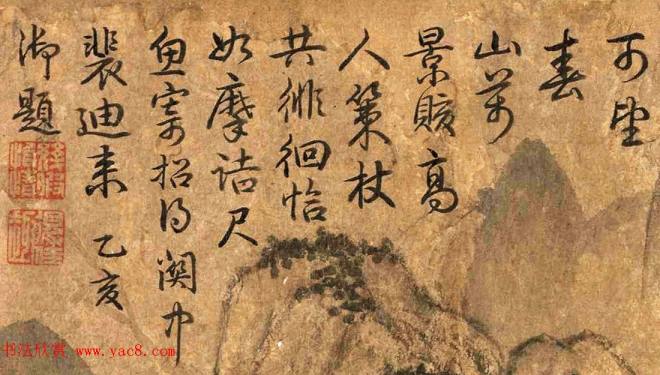 可望
春
山萬
景賅高
人策杖
共徘徊恰
如摩詰尺
魚寄招得關中
裴迪來 乙亥
御題
书法欣赏 www.yac8.com